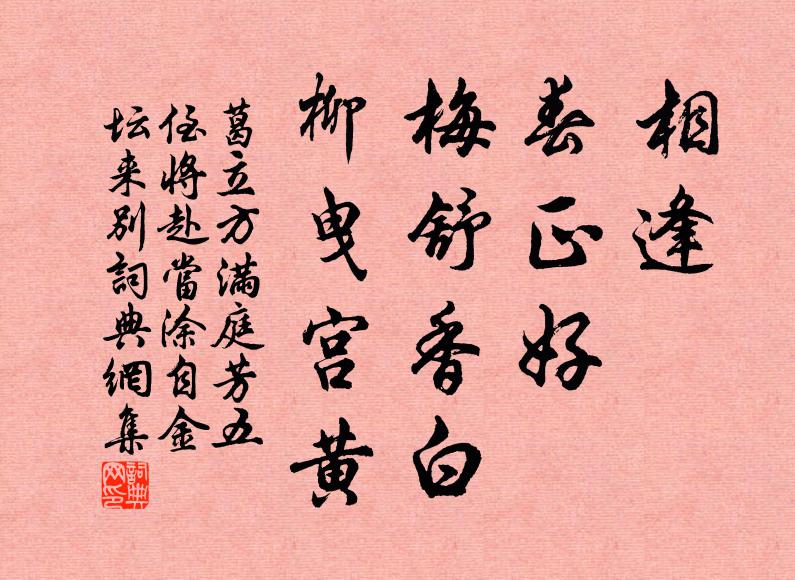 相逢
春正好
梅舒香白
柳曳宫黄
葛立方满庭芳五
侄將赴當涂自金
坛来别詞典網集
詞典网印